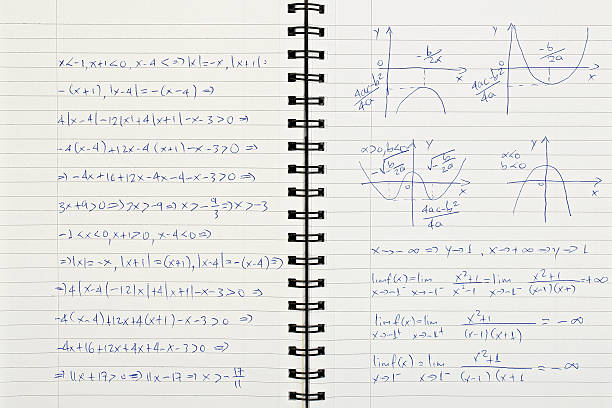 x<-1, x+1<0, x-4<⇒|x|=-x, |x+1|=
-(x+1), |x-4|=-(x-4)⇒
4|x-4|-12|x|+4|x+1|-x-3>0⇒
-4(x-4)+12x-4(x+1)-x-3>0⇒
⇒-4x+16+12x-4x-4-x-3>0⇒
3x+9>0⇒3x>-9⇒x>-9/3⇒x>-3
-1<x<0, x+1>0, x-4<0⇒
⇒|x|=-x, |x+1|=(x+1), |x-4|=-(x-4)⇒
⇒4|x-4|-12|x|+4|x+1|-x-3>0⇒
-4(x-4)+12x+4(x+1)-x-3>0⇒
-4x+16+12x+4x+4-x-3>0⇒
⇒11x+17>0⇒11x-17⇒x>-17/11
y
0
-b/2a
x
4ac-b²/4a
y
0
-b/2a
x
4ac-b²/4a
α>0, b<0
y
-√-b/2a
√-b/2a
0
x
4ac-b²/4a
α<0
b<0
y
0
x
x→-∞⇒y→1, x→+∞⇒y→1
limf(x)=lim x²+1/x²-1=lim x²+1/(x-1)(x+)=+∞
x→-1⁻ x→-1⁻ x→-1⁻
limf(x)=lim x²+1/(x-1)(x+1)=-∞
x→-1⁺ x→-1⁺
limf(x)=lim x²+1/(x-1)(x+1=-∞
x→1⁻ x→1⁻